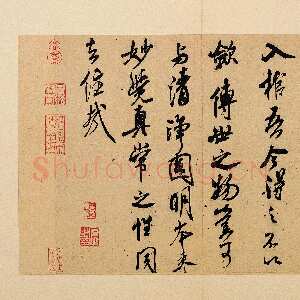 入棺吾今得之不以
斂傳世之物豈可
与清淨圓明本来
妙覺真常之性同
去住哉